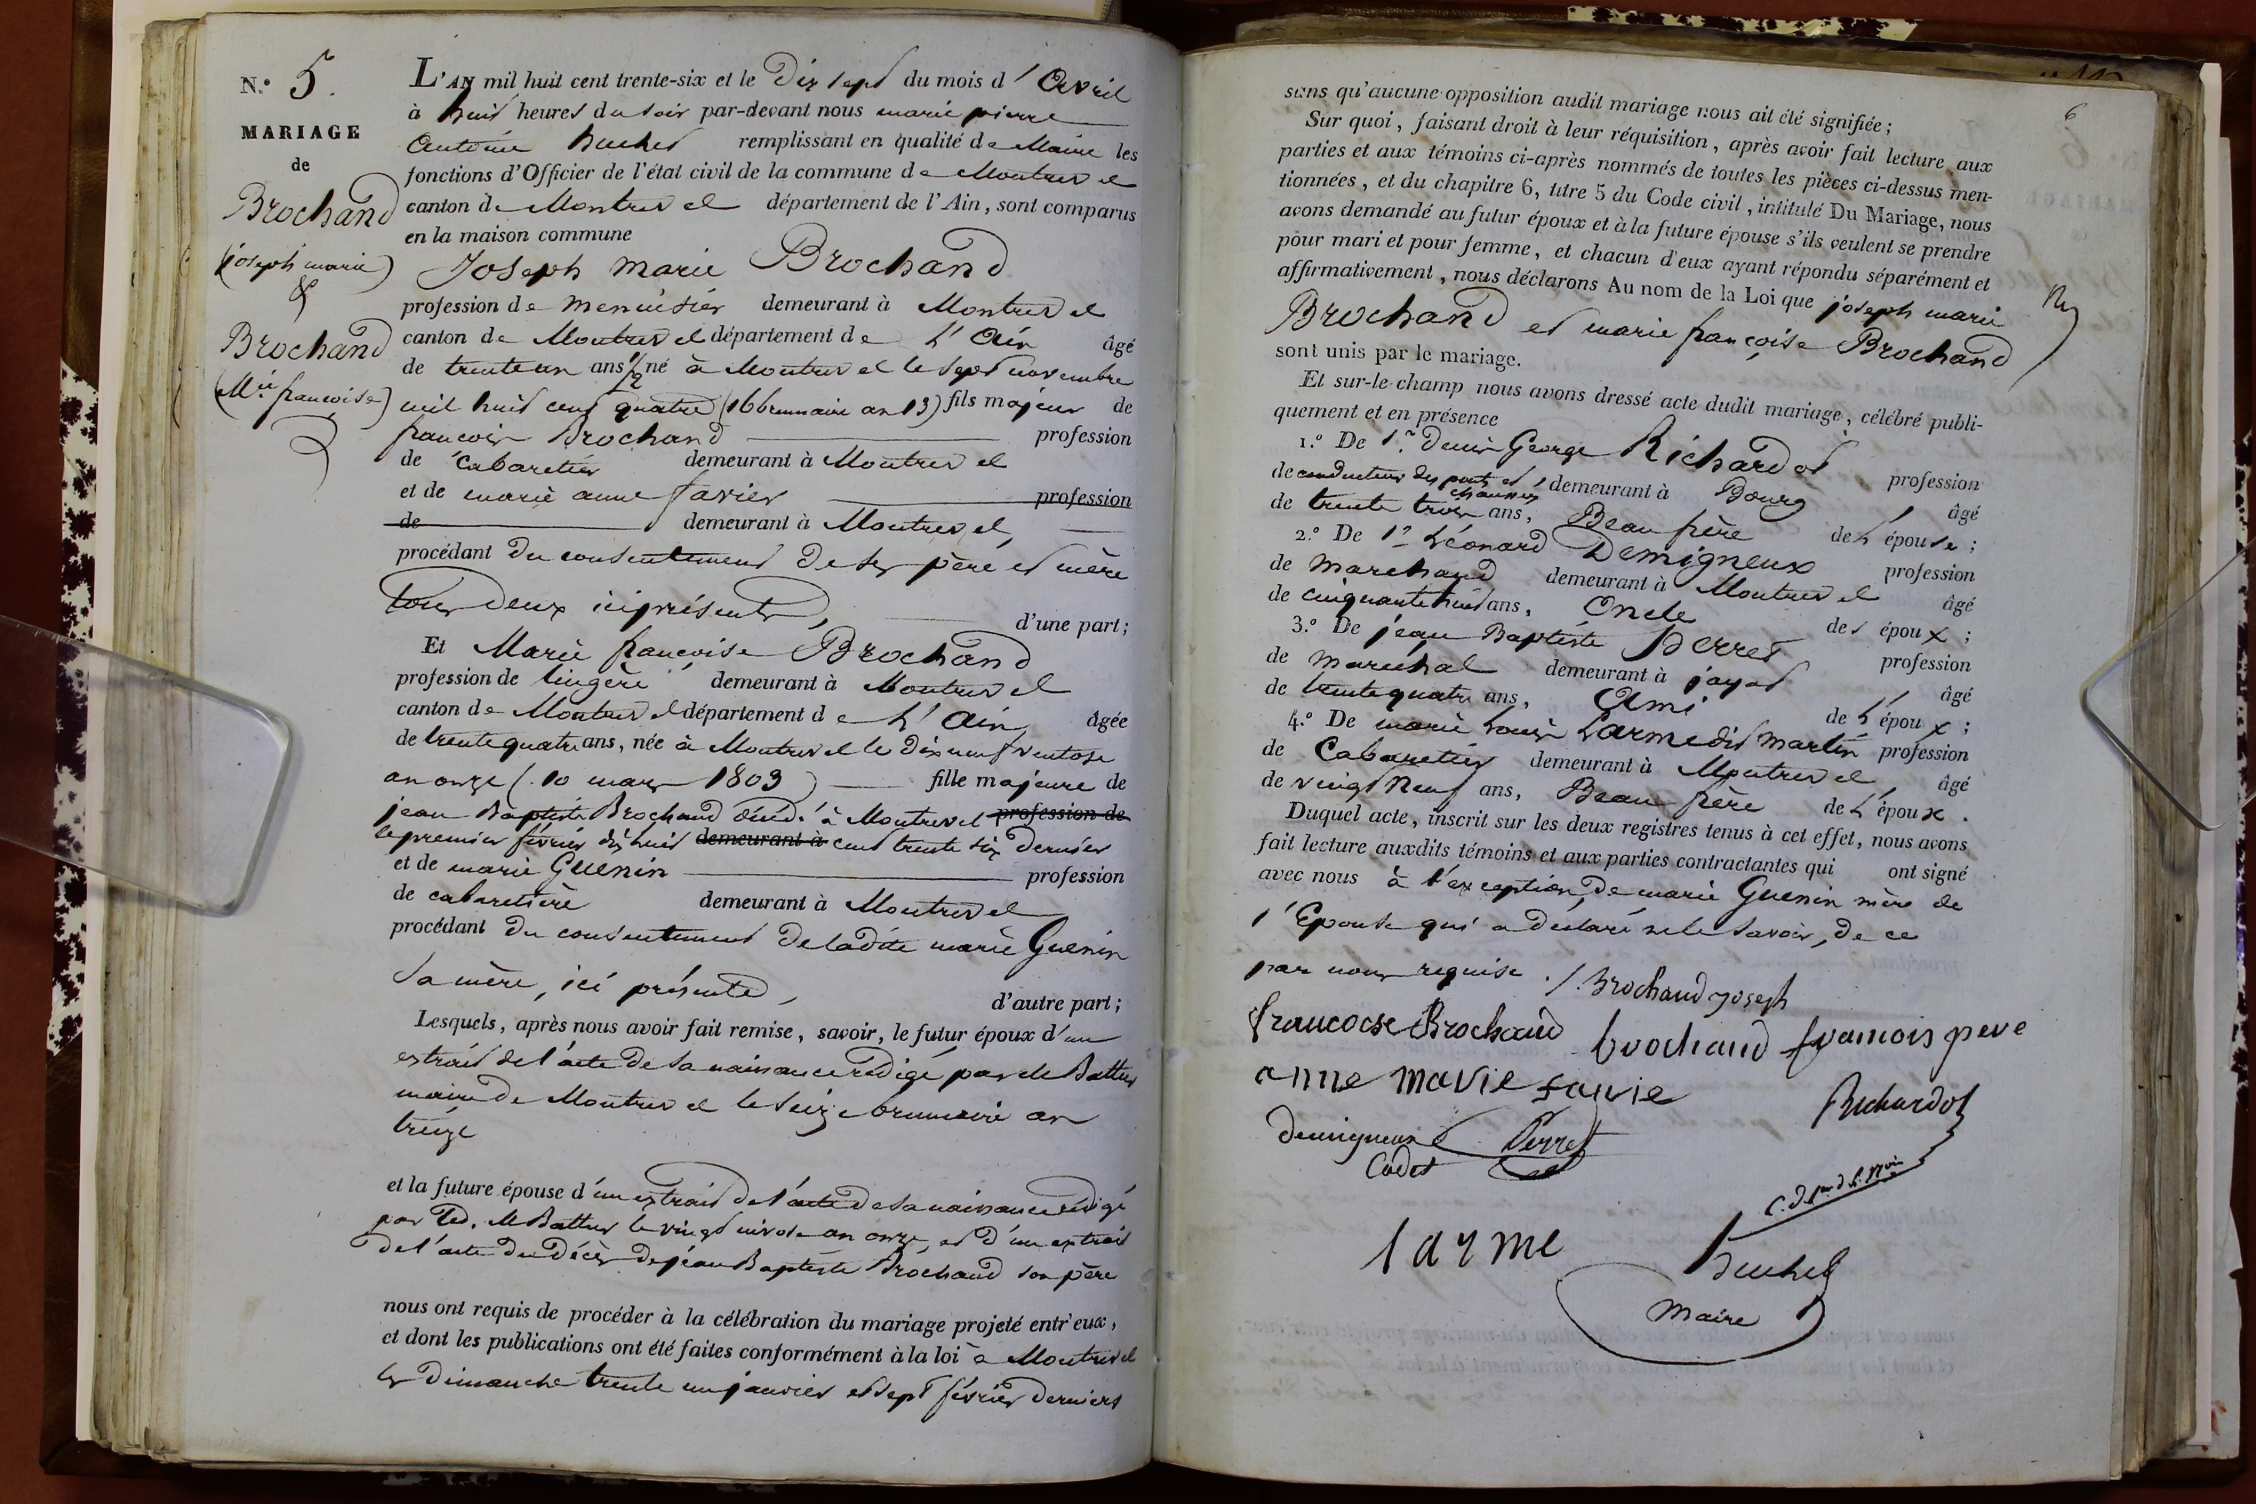 N.° 5.
MARIAGE
de
Brochand
(joseph marie)
&
Brochand
(M.ie francoise)
L'AN mil huit cent trente-six et le Dix sept du mois d'Avril
à huit heures du soir par-devant nous marie pierre
Antoine Buchet remplissant en qualité de Maire les
fonctions d'Officier de l'état civil de la commune de Montrevel
canton de Montrevel département de l'Ain, sont comparus
en la maison commune
Joseph Marie Brochand
profession de menuisier demeurant à Montrevel
canton de Montrevel département de L'Ain âgé
de trente un ans 1/2 né à Montrevel le sept novembre
mil huit cent quatre (16 brumaire an 13) fils majeur de
francois Brochand profession
de Cabaretier demeurant à Montrevel
et de marie anne favier profession
de demeurant à Montrevel,
procédant du consentement de ses père et mère
tous deux ici présents, d'une part;
Et Marie francoise Brochand
profession de lingère demeurant à Montrevel
canton de Montrevel département de L'Ain âgée
de trente quatre ans, née à Montrevel le dix neuf ventose
an onze (10 mars 1803) fille majeure de
jean Baptiste Brochand décédé à Montrevel profession de
le premier février dix huit demeurant à cent trente six dernier
et de marie Guenin profession
de cabaretière demeurant à Montrevel
procédant du consentement de ladite marie Guenin
sa mère, ici présente, d'autre part;
Lesquels, après nous avoir fait remise, savoir, le futur époux d'un
extrait de l'acte de sa naissance rédigé par
maire de Montrevel le seize brumaire an
treize
et la future épouse d'un extrait de l'acte de sa naissance rédigé
par le vingt an onze, et d'un extrait
de l'acte du décès de jean Baptiste Brochand son père
nous ont requis de procéder à la célébration du mariage projeté entr'eux,
et dont les publications ont été faites conformément à la loi à Montrevel
les dimanche trente un janvier et sept février derniers
6
sans qu'aucune opposition audit mariage nous ait été signifiée;
Sur quoi, faisant droit à leur réquisition, après avoir fait lecture aux
parties et aux témoins ci-après nommés de toutes les pièces ci-dessus men-
tionnées, et du chapitre 6, titre 5 du Code civil, intitulé Du Mariage, nous
avons demandé au futur époux et à la future épouse s'ils veulent se prendre
pour mari et pour femme, et chacun d'eux ayant répondu séparément et
affirmativement, nous déclarons Au nom de la Loi que joseph marie
Brochand et marie françoise Brochand
sont unis par le mariage.
Et sur-le-champ nous avons dressé acte dudit mariage, célébré publi-
quement et en présence
1.° De s.r Denis George Richardot profession
de conducteur des ponts et chaussées demeurant à Bourg âgé
de trente trois ans, Beau frère de L'épouse;
2.° De s.r Léonard Demigneux profession
de Marchand demeurant à Montrevel âgé
de cinquante huit ans, Oncle des époux;
3.° De jean Baptiste Perret profession
de Maréchal demeurant à jayat âgé
de trente quatre ans, Ami de L'époux;
4.° De marie Louis Larme dit Martin profession
de Cabaretier demeurant à Montrevel âgé
de vingt Neuf ans, Beau frère de L'époux.
Duquel acte, inscrit sur les deux registres tenus à cet effet, nous avons
fait lecture auxdits témoins et aux parties contractantes qui ont signé
avec nous à l'exception de marie Guenin mère de
l'Epouse qui a déclaré ne le savoir, de ce
par nous requise. /. Brochand joseph
francoise Brochand brochand framois pere
anne marie favie Richardot
Demigneux Perret
Cadet
larme Buchet
Maire